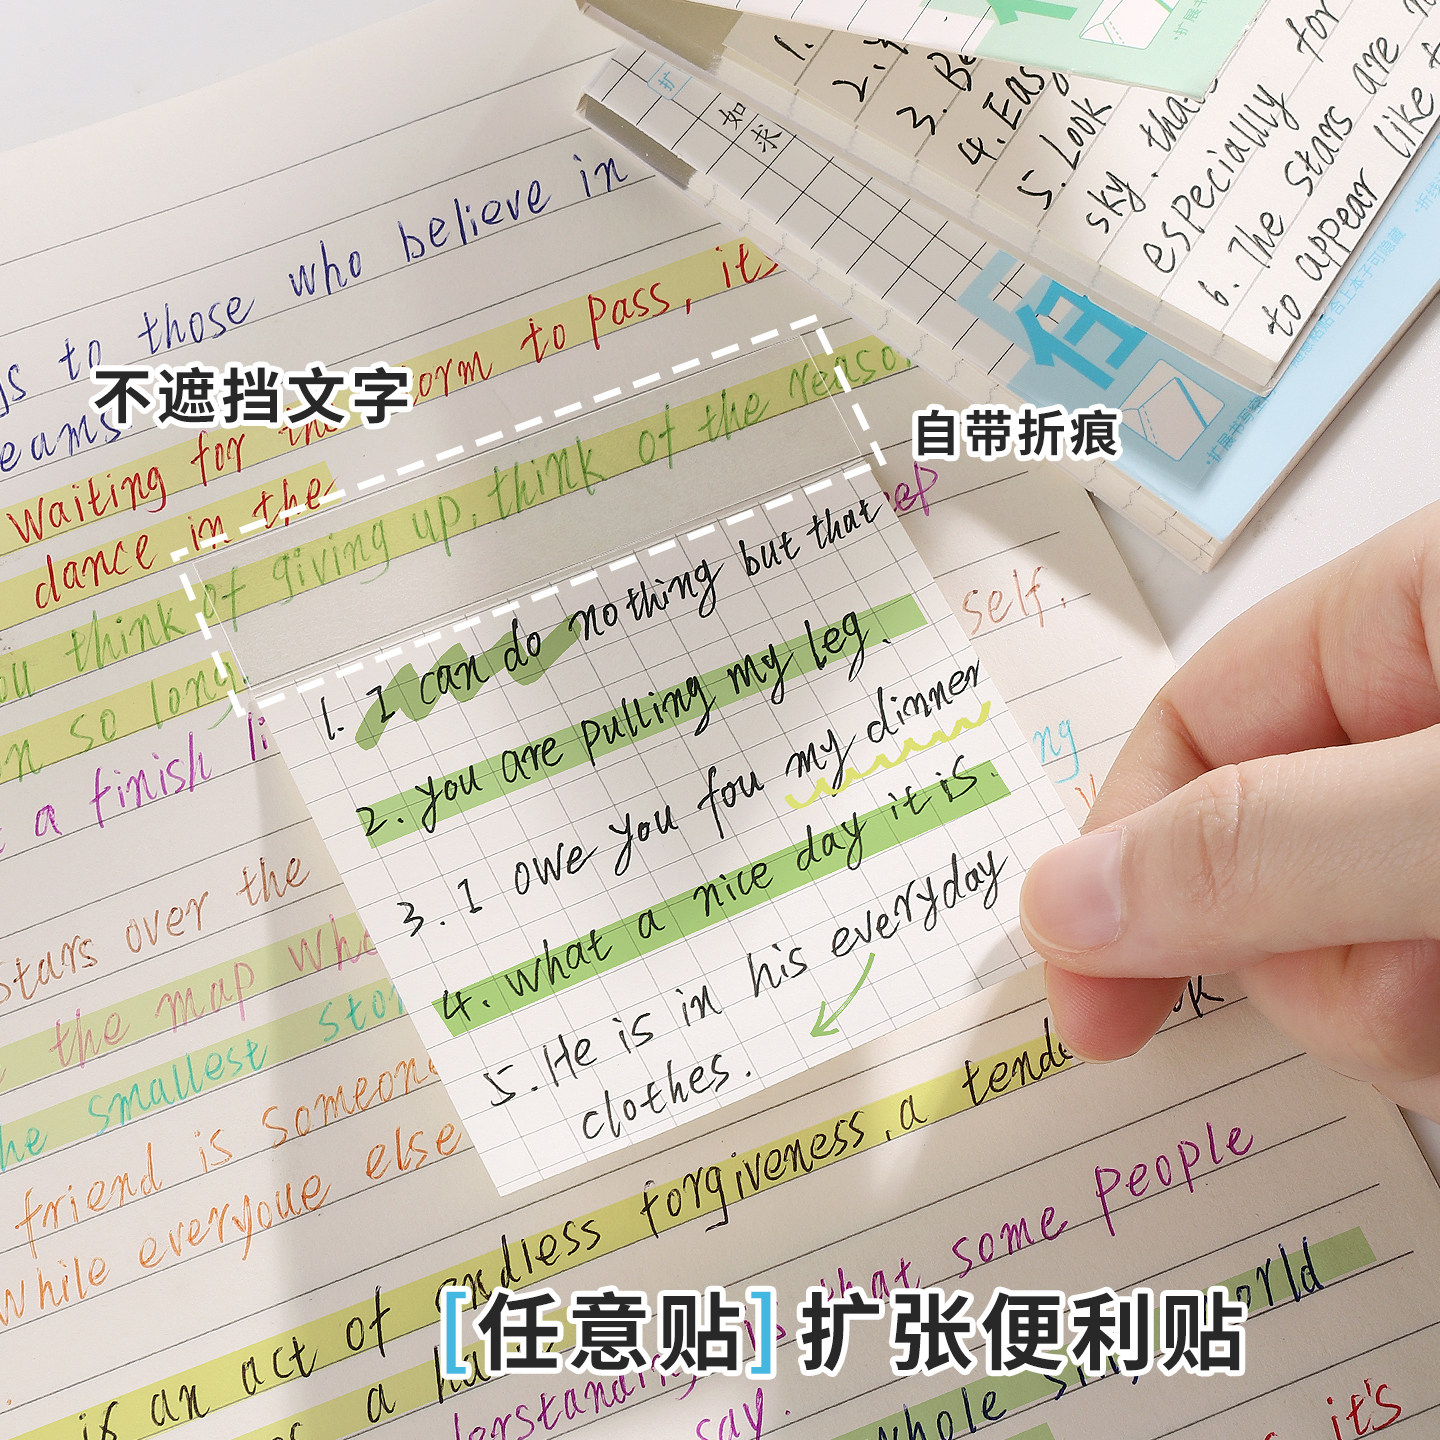 1.
2.
3. Be
4. Easy
5. Look
sky. that
especiallly for
6. The stars are
to appear like
扩
如
求
任
who believe in
gs to those
eams
to pass, its
waiting for the
dance in the
think of the reason
of giving up,
ou think
n so long
eep
self.
a finish li
ng
不遮挡文字
自带折痕
1. I can do nothing but that
2. you are pulling my leg.
3. I owe you fou my dinner
4. What a nice day it is.
5. He is in his everyday
clothes.
stars over the
the map whe
he smallest stor
friend is someone
While everyoue else
is an act of endless forgiveness, a tende
that some people
a ha
derstanding is
say.
whole
world
it's
[任意贴]扩张便利贴